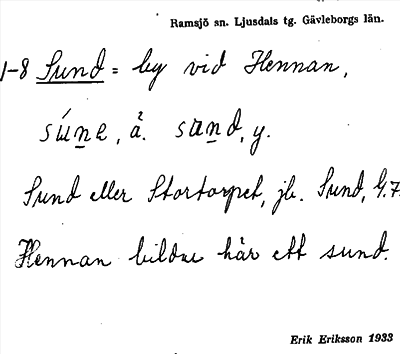 Ramsjö sn. Ljusdals tg. Gävleborgs län.
1-8 Sund = by vid Hennan,
súne, å. sund, y.
Sund eller Stortorpet, jb. Sund, G.7.
Hennan bildar här ett sund.
Erik Eriksson 1933